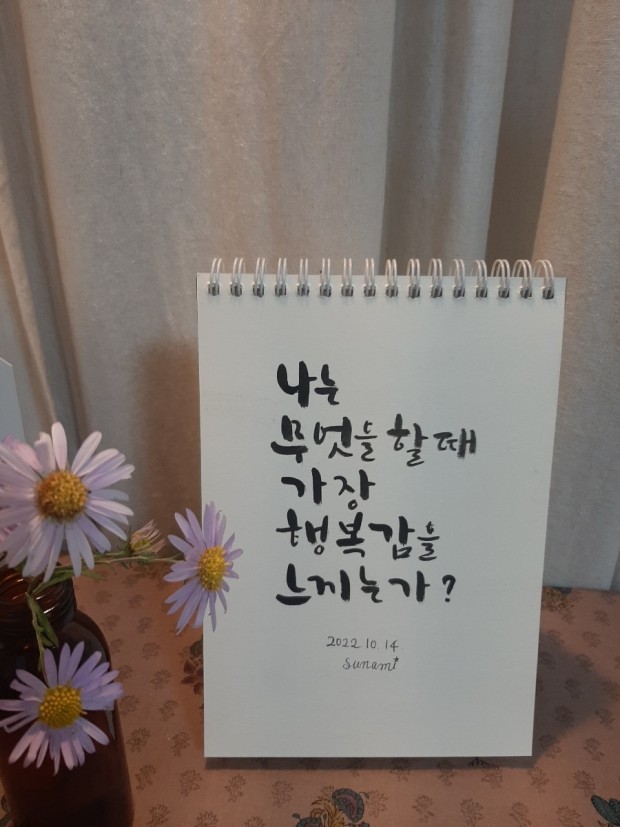 나는
무엇을 할 때
가장
행복감을
느끼는가?
2022.10.14
sunami